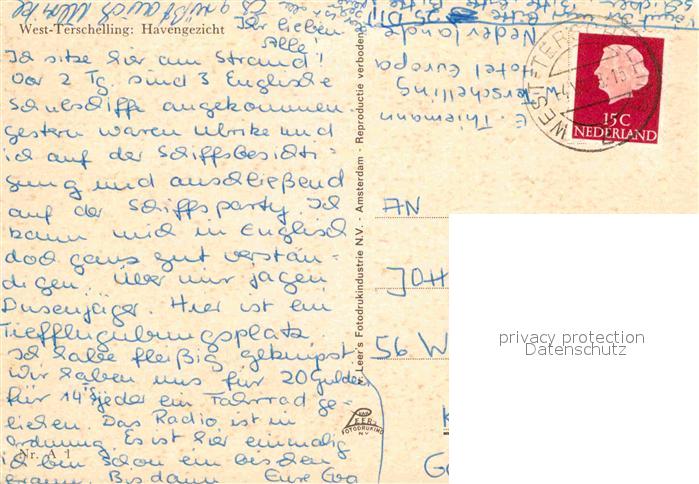 Es grüßt auch Ulrike
Ihr lieben
West-Terschelling: Havengezicht
Alle!
Ich sitze hier am Strand!
Vor 2 Tg. sind 3 Englische
Schulschiffe angekommen.
gestern waren Ulrike und
ich auf der Schiffsbesichti-
gung und anschließend
auf der Schiffsparty. Ich
kann mich in Englisch
doch ganz gut verstän-
digen. Über mir jagen
Düsenjäger. Hier ist ein
Tiefflugübungsplatz.
Ich habe fleißig geknipst
Wir haben uns für 20 Gulden
für 14 jeder ein Fahrrad ge-
liehen. Das Radio ist in
Ordnung. Es ist hier einmalig
Nr. A 1
ich bin schon ein bischen
braun. Bis dann Eure Eva
v. Leer's Fotodrukindustrie N.V. - Amsterdam - Reproductie verboden
VAN LEER'S
FOTODRUKIND
N.V.
E. Thiemann
W. Terschelling
Hotel Europa
Nederlande
WEST-TERSCHELLING
15 C
NEDERLAND
AN
JOH
56 W
K
Go
privacy protection
Datenschutz